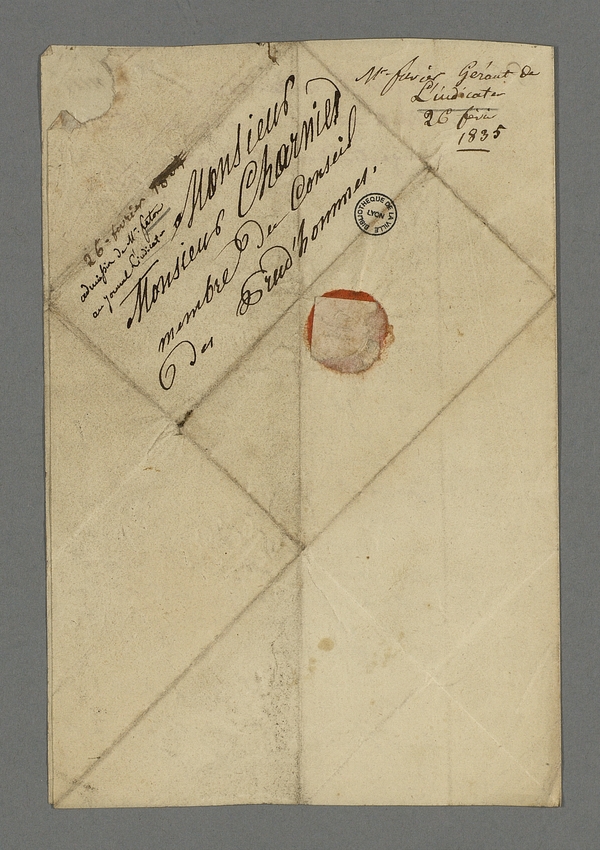 Mr favier Gérant de
L'indicateur
26 févr
1835
26 - fevrier
de Mr
au journal L'indicat
Monsieur
Monsieur Charnier
membre du Conseil
des Prud'hommes.
BIBLIOTHEQUE DE LA VILLE
LYON